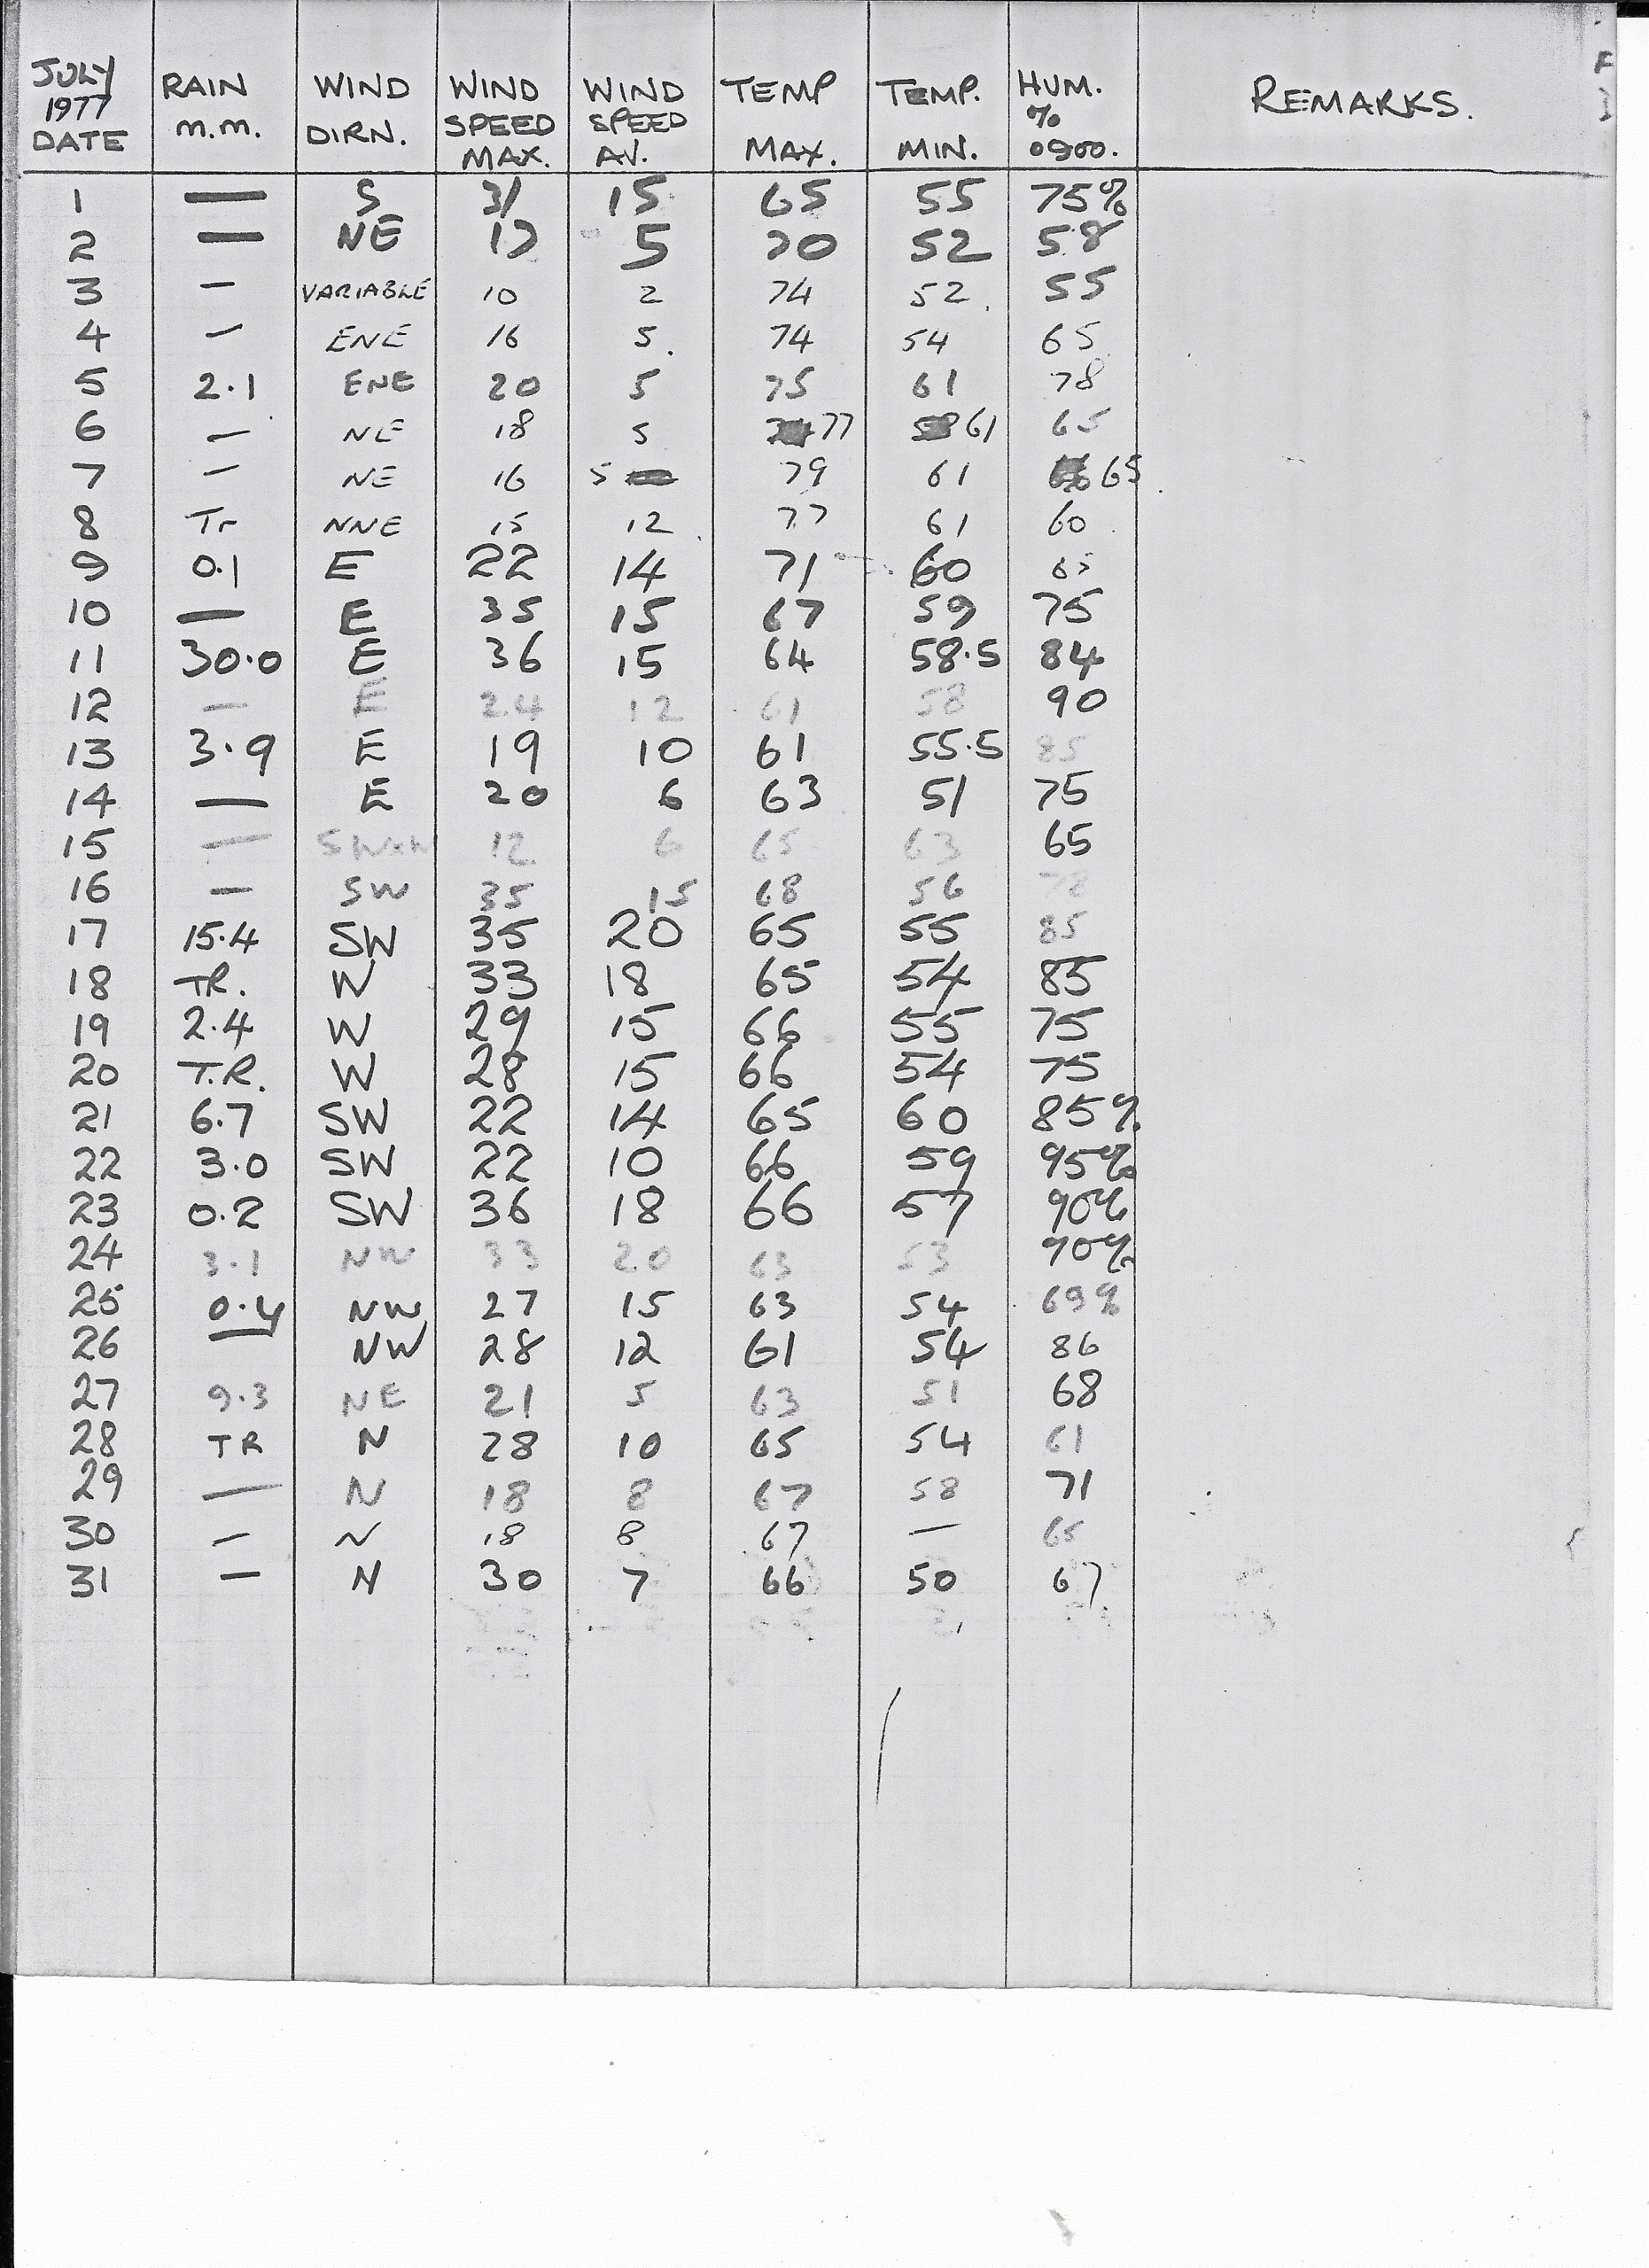 JULY 1977 DATE RAIN m.m. WIND DIRN. WIND SPEED MAX. WIND SPEED AV. TEMP MAX. TEMP. MIN. HUM. % 0900. REMARKS.
1 — S 31 15 65 55 75%
2 — NE 17 5 70 52 58
3 — VARIABLE 10 2 74 52 55
4 — ENE 16 5 74 54 65
5 2.1 ENE 20 5 75 61 78
6 — NE 18 5 77 61 65
7 — NE 16 5 79 61 65
8 Tr NNE 15 12 77 61 60
9 0.1 E 22 14 71 60 65
10 — E 35 15 67 59 75
11 30.0 E 36 15 64 58.5 84
12 — E 24 12 61 58 90
13 3.9 E 19 10 61 55.5 85
14 — E 20 6 63 51 75
15 — 12 6 65 63 65
16 — SW 35 15 68 56 78
17 15.4 SW 35 20 65 55 85
18 TR. W 33 18 65 54 85
19 2.4 W 29 15 66 55 75
20 T.R. W 28 15 66 54 75
21 6.7 SW 22 14 65 60 85%
22 3.0 SW 22 10 66 59 95%
23 0.2 SW 36 18 66 57 90%
24 3.1 NW 33 20 63 53 90%
25 0.4 NW 27 15 63 54 69%
26 — NW 28 12 61 54 86
27 9.3 NE 21 5 63 51 68
28 TR N 28 10 65 54 61
29 — N 18 8 67 58 71
30 — N 18 8 67 — 65
31 — N 30 7 66 50 67